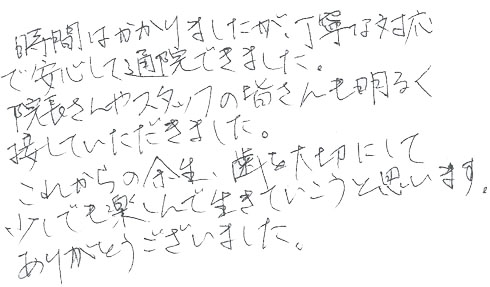 時間はかかりましたが、丁寧な対応
で安心して通院できました。
院長さんやスタッフの皆さんも明るく
接していただきました。
これからの余生、歯を大切にして
少しでも楽しんで生きていこうと思います。
ありがとうございました。